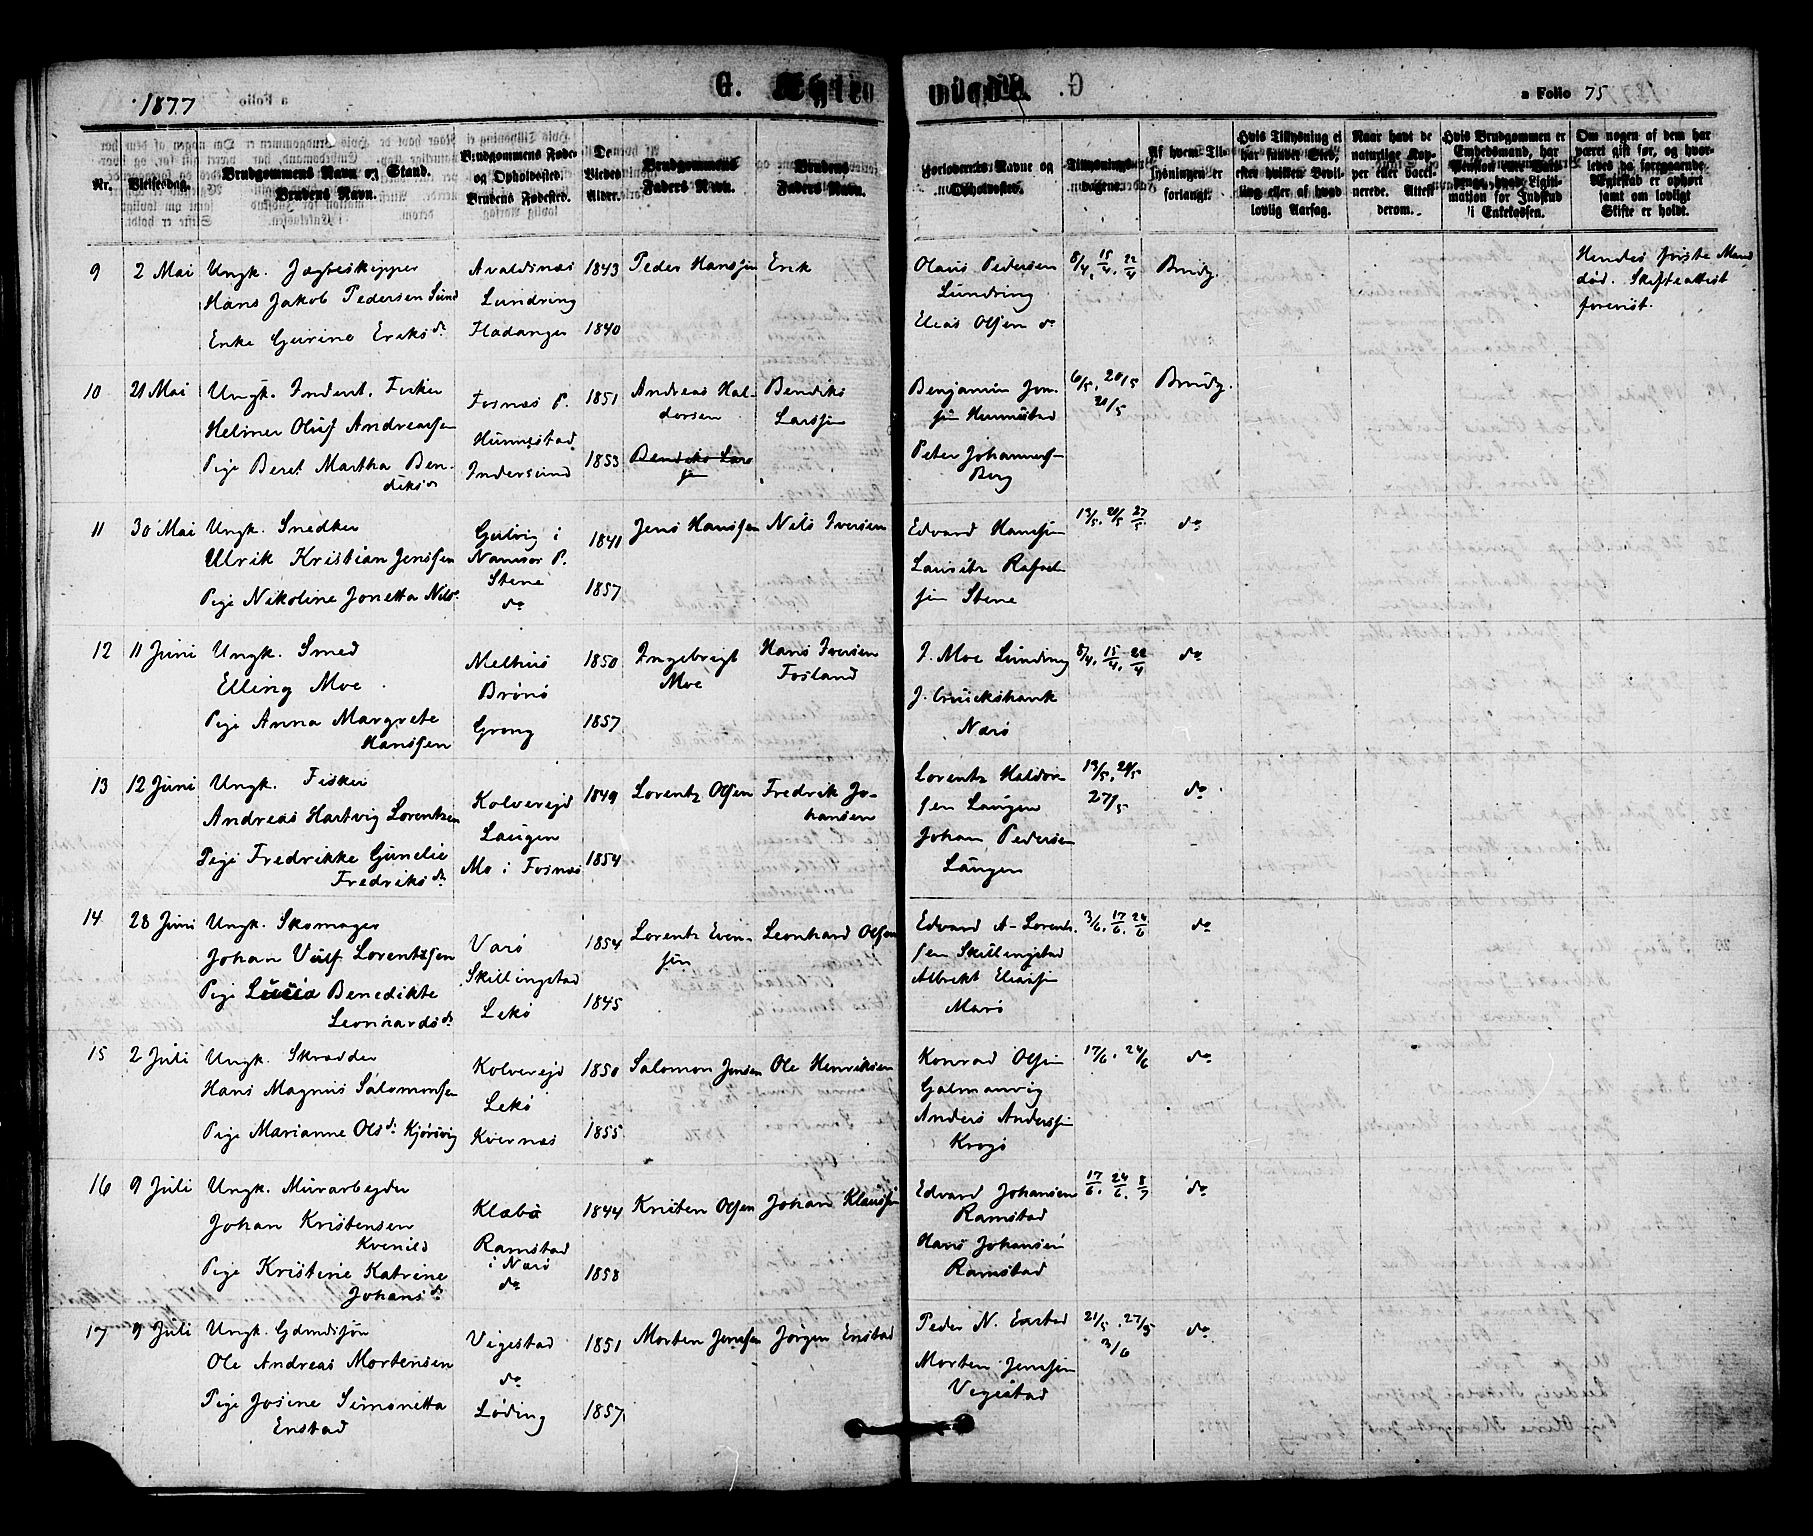 1877
G. Ægte
viede.
a Folio 75
Nr.
Vielsesdag.
Brudgommens Navn og Stand.
Brudens Navn.
Brudgommens Føde-
og Opholdssted.
Brudens Fødested.
De
Viedes
Alder.
Brudgommens
Faders Navn.
Brudens
Faders Navn.
Forlovernes Navne og
Opholdssted.
Tillysnings-
dagene.
Af hvem Til-
lysningen er
forlangt.
Hvis Tillysning ei
har fundet Sted,
efter hvilken Bevil-
ling eller af hvad
lovlig Aarsag.
Naar havt de
naturlige Kop-
per eller vacci-
nerede. Attest
derom.
Hvis Brudgommen er
Embedsmand, har
mation for Indskud
i Enkekassen.
Om nogen af dem har
været gift før, og hvor-
ledes da foregaaende
Ægteskab er ophørt
samt om lovligt
Skifte er holdt.
9 2 Mai Ungk. Jægteskipper
Hans Jakob Pedersen Sund
Enke Gurine Eriks dr
Avaldsnæs
Lundring
Fladanger
1843
1840
Peder Hanssen
Erik
Olaus Pedersen
Lundring
Elias Olsen do
8/4, 15/4, 22/4
Brudg.
Hendes første Mand
død. Skifteattest
forevist.
10 21 Mai Ungk. Inderst. Fisker
Helmer Oluf Andreassen
Pige Beret Martha Ben-
diksdr
Fosnæs P.
Hunnestad
Indersund
1851
1853
Andreas Hal-
dorsen
Bendiks Lars
sen
Bendiks
Larssen
Benjamin Jon-
sen Hunnestad
Peter Johannes
Berg
6/5, 20/5
21/5
Brudg.
11 30 Mai Ungk. Snedker
Ulrik Kristian Jenssen
Pige Nikoline Jonetta Nils
Gulvig i
Namsos P.
Stene
do
1841
1857
Jens Hanssen
Nils Iversen
Edvard Hanssen
Lausitz Rafael-
sen Stene
13/5, 20/5 27/5
do
12 11 Juni Ungk. Smed
Elling Moe
Pige Anna Margrete
Hanssen
Melhus
Brønø
Grong
1850
1857
Ingebrigt
Moe
Hans Iversen
Fosland
J. Moe Lundring
J. Cruickshank
Nærø
8/4, 15/4, 22/4
do
13 12 Juni Ungk. Fisker
Andreas Hartvig Lorentzen
Pige Fredrikke Gunelie
Fredriks dr
Kolvereid
Laugen
Mo i Fosnæs
1849
1854
Lorentz Olsen
Fredrik Jo-
hansen
Lorentz Haldor-
sen Laugen
Johan Pedersen
Laugen
13/5, 21/5
27/5
do
14 28 Juni Ungk. Skomager
Johan Ulif Lorentzsen
Pige Lucia Benedikte
Leonhards dr
Værø
Skillingstad
Lekø
1854
1845
Lorentz Even-
sen
Leonhard Olsen
Edvard A- Lorentz.
sen Skillingstad
Albrekt Eliassen
Marø
3/6, 17/6, 24/6
do
15 2 Juli Ungk. Skrædder
Hans Magnus Salomonsen
Pige Marianne Ols dr Kjørsvig
Kolvereid
Lekø
Kvernæs
1850
1855
Salomon Jensen
Ole Henriksen
Konrad Olsen
Galmanvig
Anders Anderssen
Krogø
17/6, 24/6
do
16 9 Juli Ungk. Murarbeyder
Johan Kristensen
Kvenild
Pige Kristine Katrine
Johans dr
Klæbo
Ramstad
i Nærø
do
1844
1858
Kristen Olsen
Johan Klaussen
Edvard Johansen
Ramstad
Hans Johansen
Ramstad
17/6, 24/6, 8/7
do
17 9 Juli Ungk. Gdmdsøn
Ole Andreas Mortensen
Pige Josine Simonetta
Enstad
Vegestad
do
Løding
1851
1857
Morten Jenssen
Jørgen Enstad
Peder N. Enstad
Morten Jenssen
Vegestad
21/5, 27/5
3/6
do